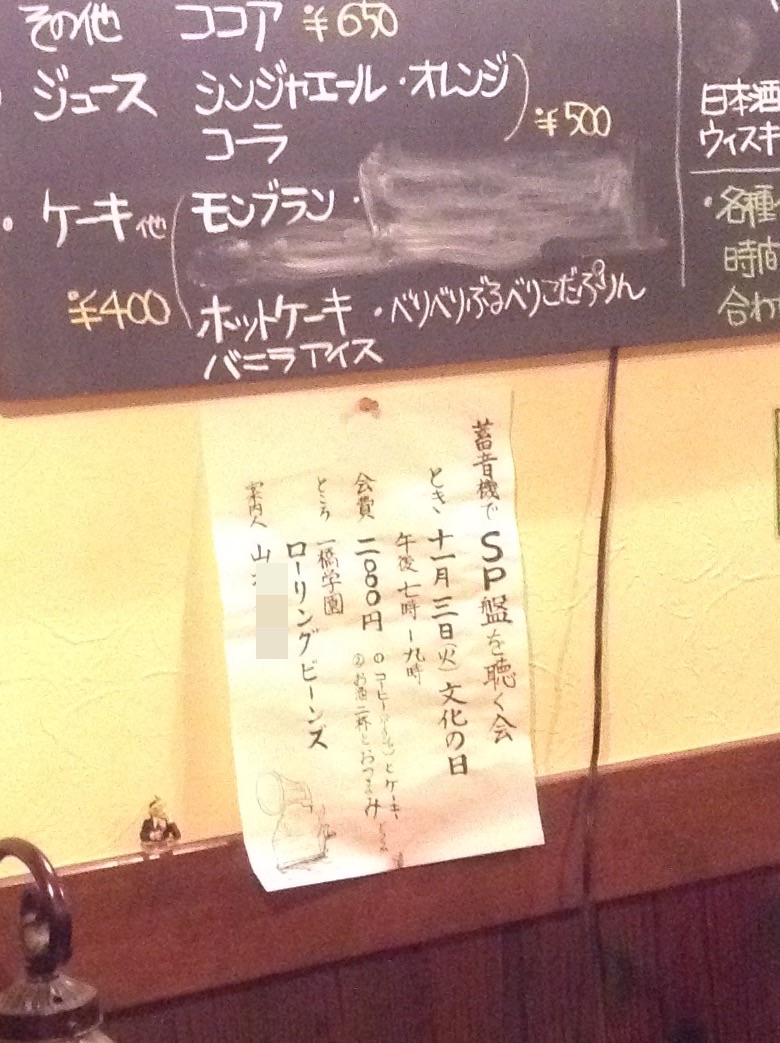 その他 ココア ¥650
ジュース シンジャエール・オレンジ
コーラ ¥500
・ケーキ他 モンブラン・
¥400 ホットケーキ・べりべりぶるべりこだぷりん
バニラアイス
日本酒
ウィスキ
・各種
時間
合わ
蓄音機でSP盤を聴く会
とき、十一月三日(火)文化の日
午後七時ー九時
会費 二〇〇〇円 ①コーヒー とケーキ
②お酒二杯とおつまみ
ところ 一橋学園
ローリングビーンズ
案内人 山